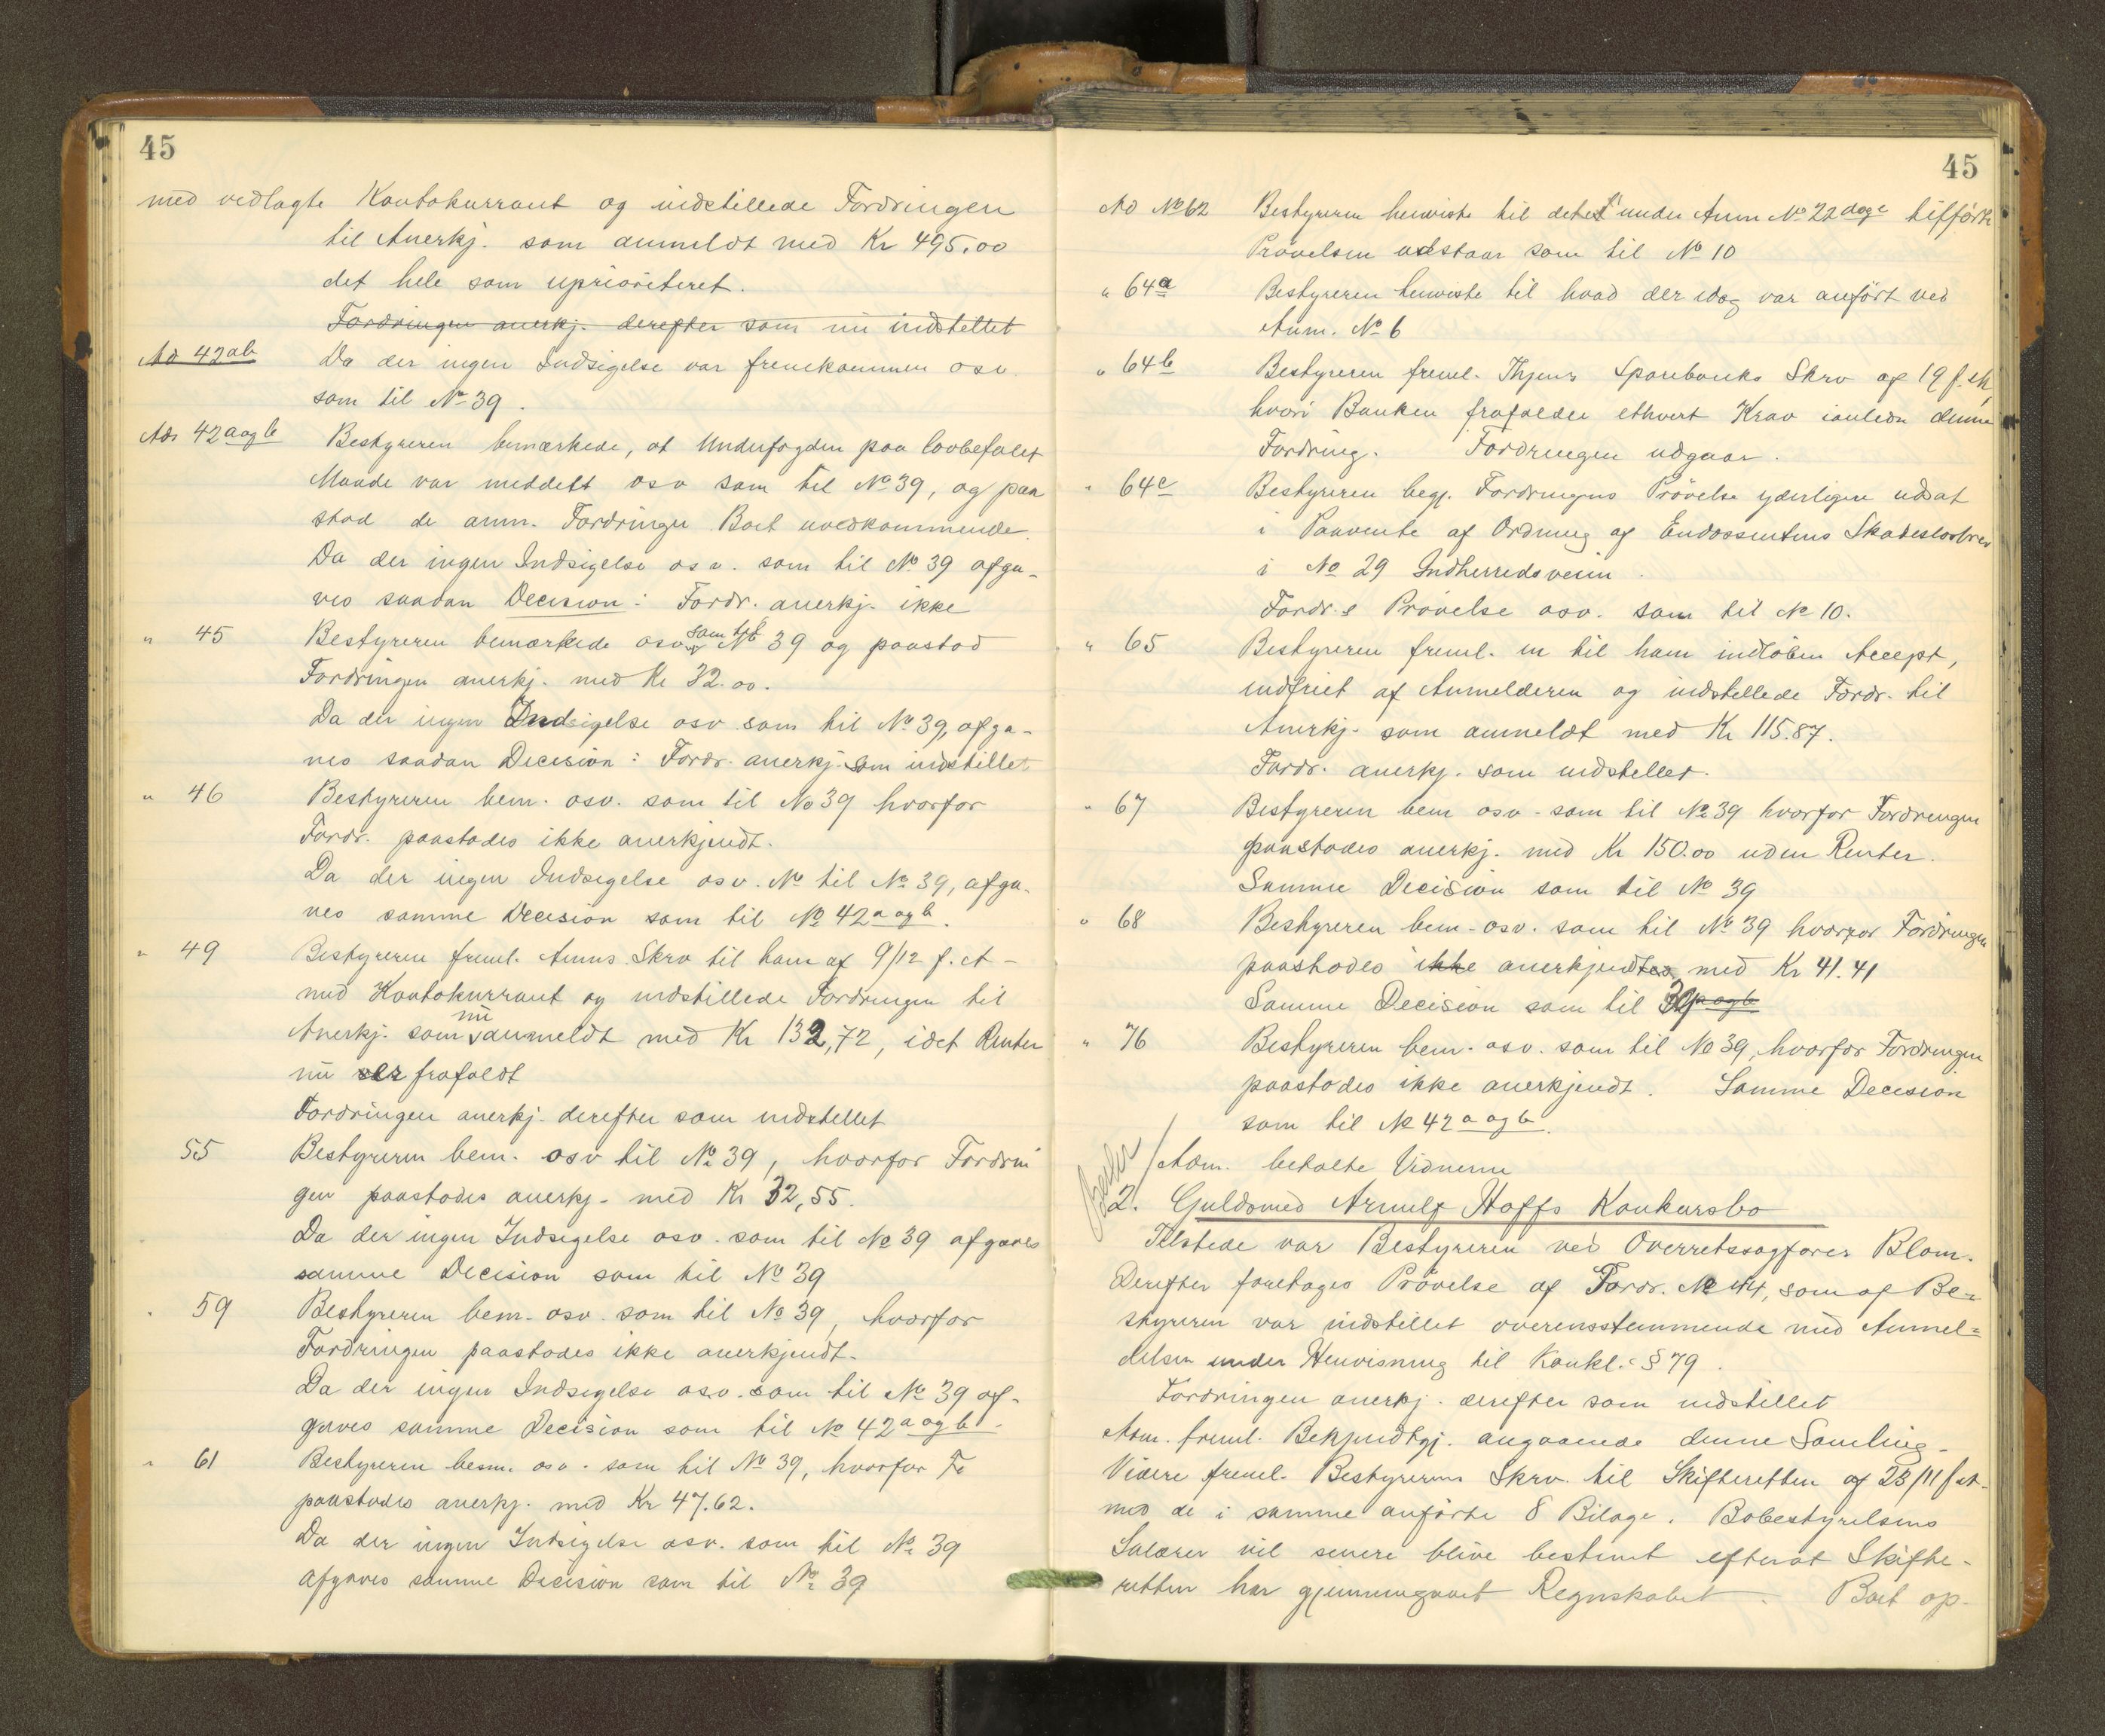 45
med vedlagte Kontokurrant og indstillede Fordringen
til Anerkj. som anmeldt med Kr 495.00
det hele som uprioriteret.
Fordringen anerkj. derefter som nu indstillet
Ad 42ab Da der ingen Indsigelse var fremkommen osv.
som til No 39.
Ad 42a og b Bestyreren bemærkede, at Underfogden paa lovbefalet
Maade var meddelt osv som til No 39, og paa
stod de anm. Fordringer Boet uvedkommende.
Da der ingen Indsigelse osv. som til No 39 afga-
ves saadan Decision: Fordr. anerkj. ikke
" 45 Bestyreren bemærkede osv som til No 39 og paastod
Fordringen anerkj. med Kr 32.00.
Da der ingen Indsigelse osv. som til No 39, afga-
ves saadan Decision: Fordr. anerkj. som indstillet
" 46 Bestyreren bem. osv. som til No 39 hvorfor
Fordr. paastodes ikke anerkjendt.
Da der ingen Indsigelse osv. No til No 39, afga-
ves samme Decision som til No 42a og b.
" 49 Bestyreren freml. Anms. Skrv til ham af 9/12 f. A-
med Kontokurrant og indstillede Fordringen til
Anerkj. som nu anmeldt med Kr 132,72, idet Renter
nu er frafaldt
Fordringen anerkj. derefter som indstillet
55 Bestyreren bem. osv til No 39, hvorfor Fordrin
gen paastodes anerkj. med Kr 32,55.
Da der ingen Indsigelse osv. som til No 39 afgaves
samme Decision som til No 39
" 59 Bestyreren bem. osv. som til No 39, hvorfor
Fordringen paastodes ikke anerkjendt.
Da der ingen Indsigelse osv. som til No 39 af-
gaves samme Decision som til No 42a og b.
" 61 Bestyreren bem. osv. som til No 39, hvorfor Fo
paastodes anerkj. med Kr 47.62.
Da der ingen Indsigelse osv. som til No 39
afgaves samme Decision som til No 39
45
Ad No 62 Bestyreren henviste til det under Anm No 22 tilførte
Prøvelsen udstaar som til No 10
" 64a Bestyreren henviste til hvad der idag var anført ved
Anm. No 6
" 64b Bestyreren freml. Sparebanks Skrv af 19 f.
hvori Banken frafalder ethvert Krav ianledn denne
Fordring. Fordringen udgaar.
" 64c Bestyreren begj. Fordringens Prøvelse yderligere udsat
i Paavente af Ordning af Endossentens Skadesløsbrev
i No 29 Indherredsveien.
Fordr.s Prøvelse osv. som til No 10.
" 65 Bestyreren freml. en til ham indløben Accept,
indfriet af Anmelderen og indstillede Fordr. til
Anerkj. som anmeldt med Kr 115.87.
Fordr. anerkj. som indstillet.
" 67 Bestyreren bem osv. som til No 39 hvorfor Fordringen
paastodes anerkj. med Kr 150.00 uden Renter.
Samme Decision som til No 39
" 68 Bestyreren bem. osv. som til No 39 hvorfor Fordringen
paastodes ikke anerkjendtes med Kr 41.41
Samme Decision som til 39 a og b
" 76 Bestyreren bem. osv. som til No 39, hvorfor Fordringen
paastodes ikke anerkjendt. Samme Decision
som til No 42a og b.
Adm. betalte Vidnerne
2. Guldsmed Arnulf Hoffs Konkursbo
Tilstede var Bestyreren ved Overretssagfører Blom.
Derefter foretoges Prøvelse af Fordr. No 44, som af Be-
styreren var indstillet overensstemmende med Anmel=
delsen under Henvisning til Konkl. § 79.
Fordringen anerkj. derefter som indstillet
Adm. freml. Bekjendtgj. angaaende denne Samling.
Videre freml. Bestyrerens Skrv. til Skifteretten af 23/11 f A.
med de i samme anførte 8 Bilage. Bobestyrelsens
Salærer vil senere blive bestemt efterat Skifte-
retten har gjennemgaaet Regnskabet. Boet op-